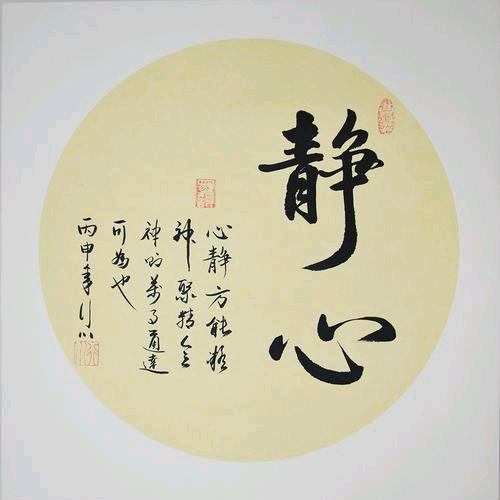 静心
心静方能凝
神聚精会
神明万事通达
可为也
丙申年行川